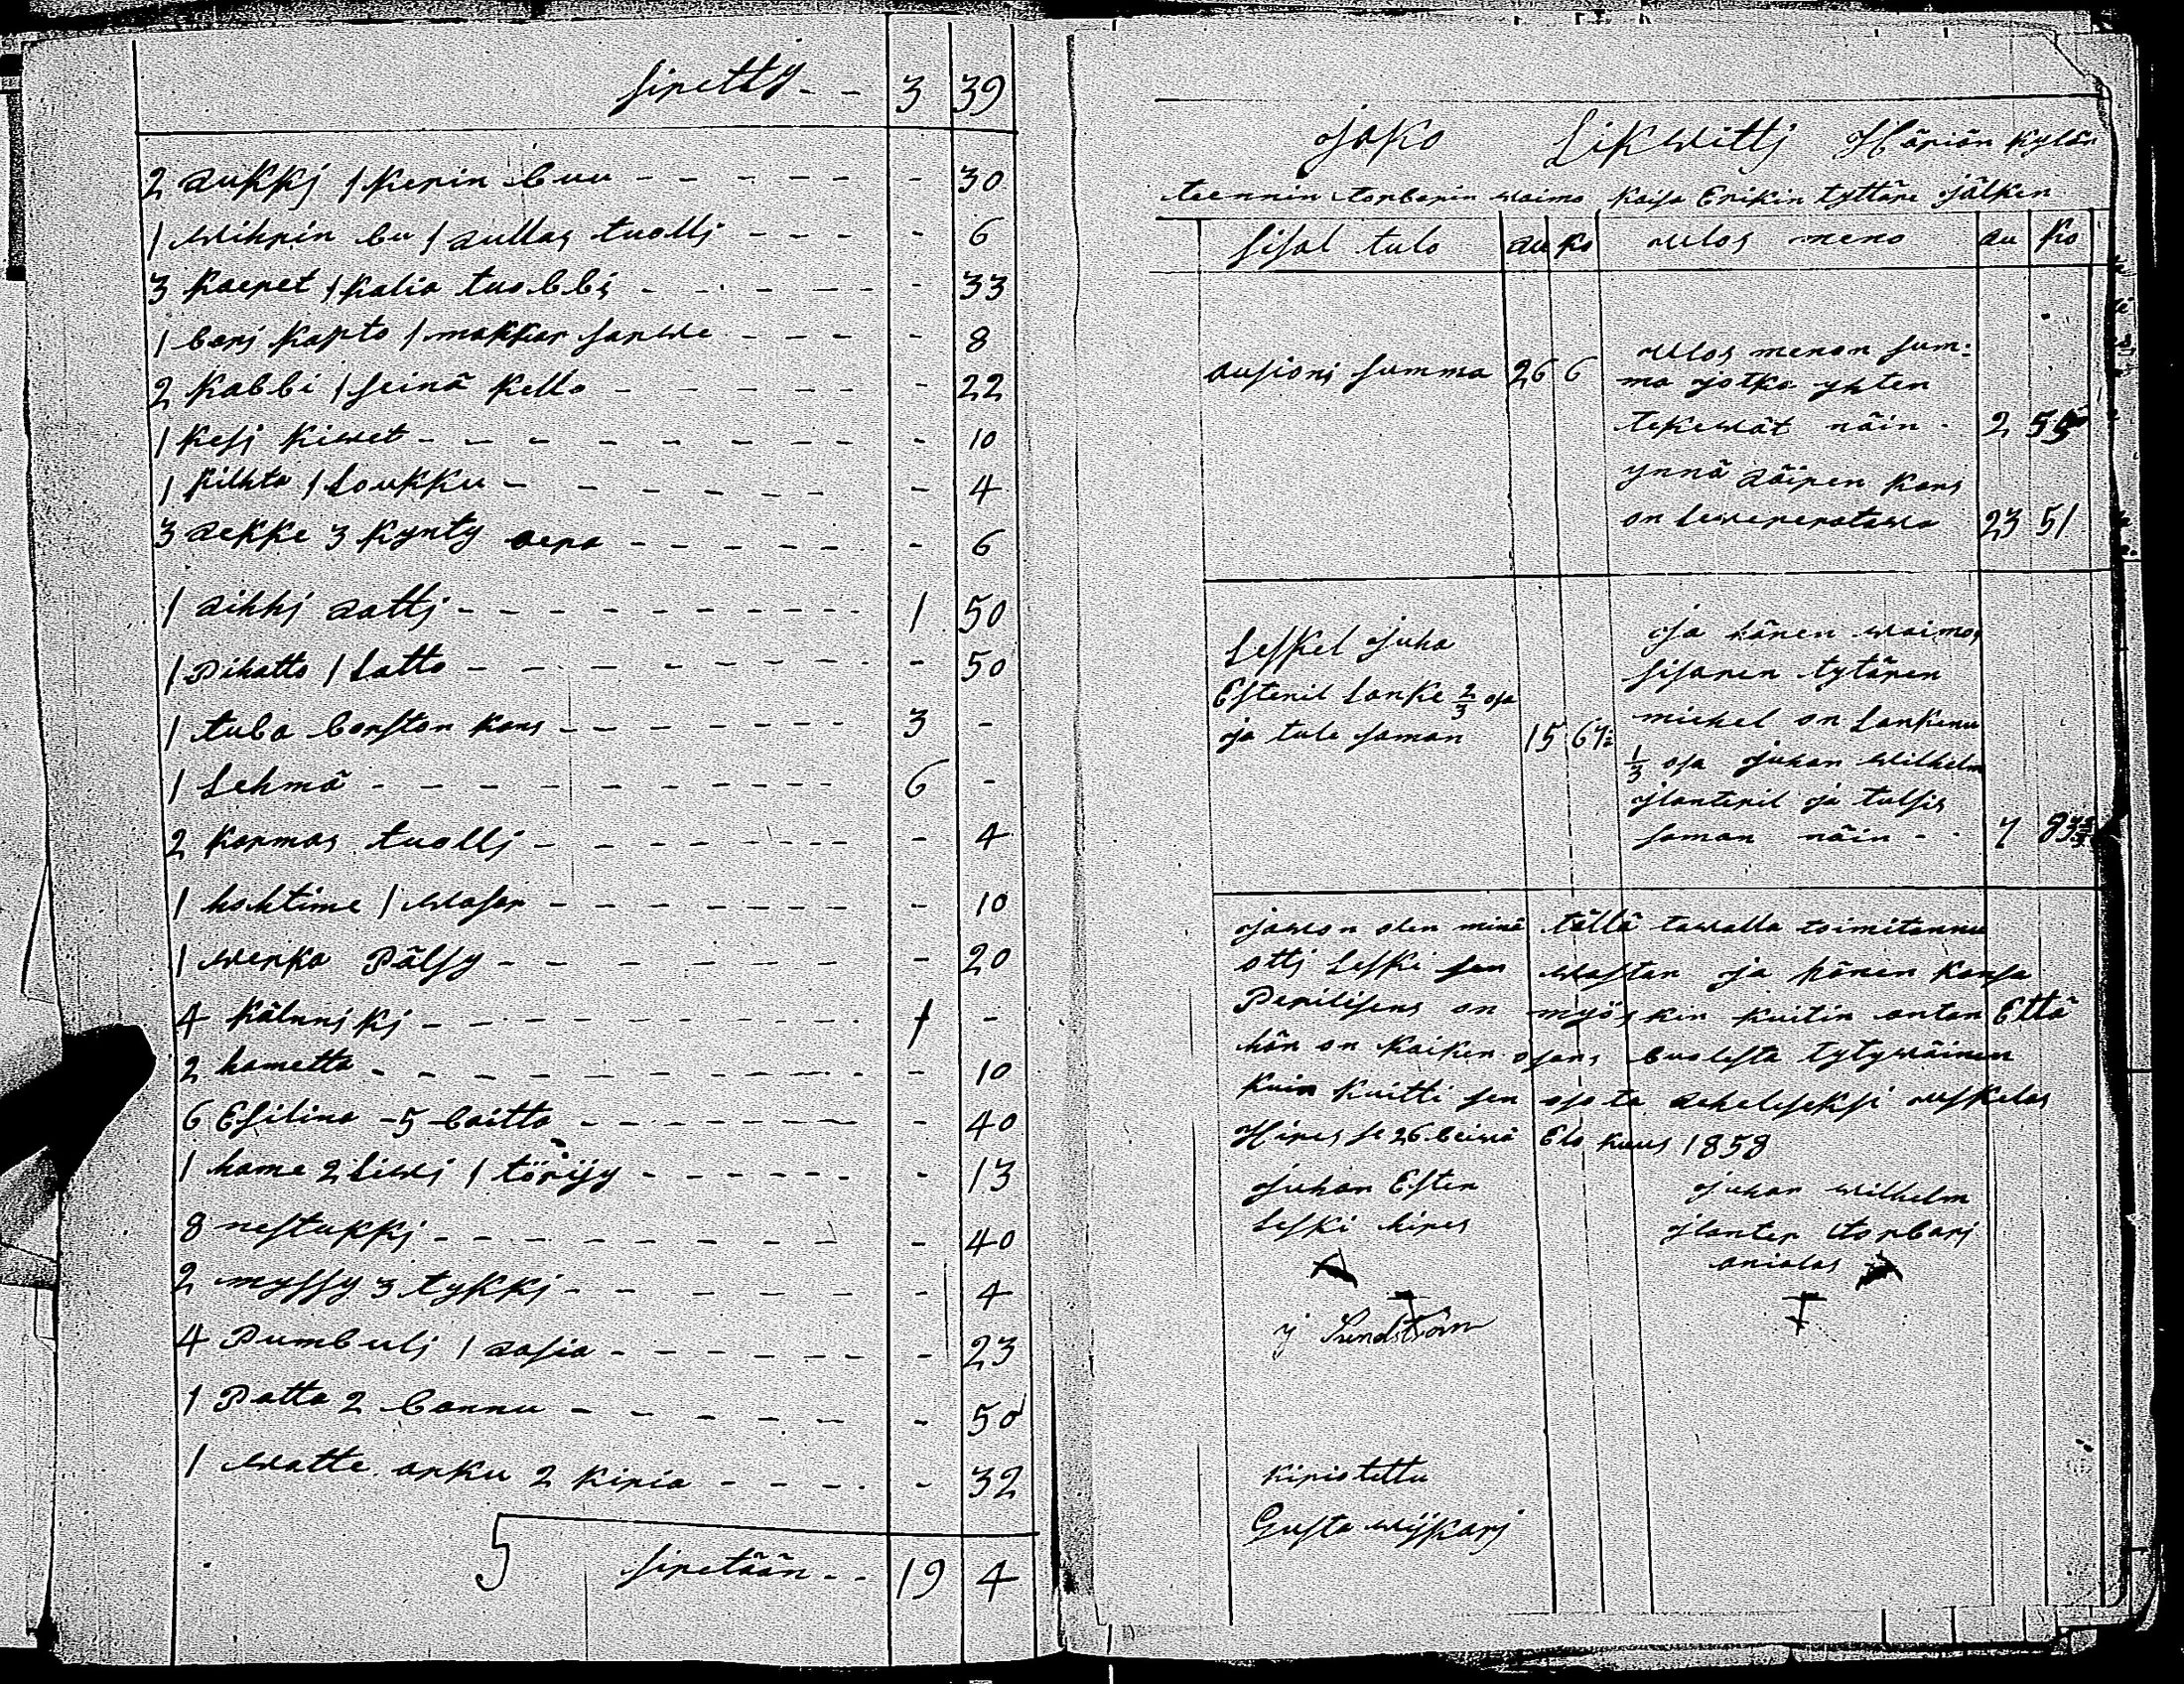 siretty - - 3 39
2 aukkj 1 kerin buu - - - - - - - 30
1 wihrin bu 1 aullas tuollj - - - - 6
3 kaeret 1 kalia tuobbi - - - - - - 33
1 barj kapto 1 makkar sarwe - - - - 8
2 kabbi 1 seinä kello - - - - - - 22
1 kesj kiwet - - - - - - - - - 10
1 kilhta 1 Loukku - - - - - - - - 4
3 aekke 3 kynty aera - - - - - - 6
1 aihhj aattj - - - - - - - - - 1 50
1 Pihatto 1 Latto - - - - - - - - - 50
1 tuba borston kans - - - - - - - 3 -
1 Lehmä - - - - - - - - - 6 -
2 karmas tuollj - - - - - - - - 4
1 hohtime 1 wasar - - - - - - - - 10
1 werka Pälsy - - - - - - - - 20
4 kälunj kj - - - - - - - - - 1 -
2 hametta - - - - - - - - - - 10
6 Esilina - 5 baitta - - - - - - - 40
1 hame 2 Liwj 1 töröjy - - - - - - - 13
8 nestukkj - - - - - - - - - 40
2 myssy 3 tykkj - - - - - - - 4
4 Pumbulj 1 aasia - - - - - - - 23
1 Patta 2 bannu - - - - - - - 50
1 watte arku 2 kiria - - - - - 32
5 siretään - - 19 4
jako Likwittj Härjän kylän
teennin torbarin waimo kaisa Erikin tyttäre jälken
sisal tulo au ko ulos meno au ko
ausionj summa 26 6
ulos menon sum=
ma jotka yhten
tekewät näin - 2 55
ynnä aäiren kans
on lewererotawa 23 51
Leskel Juha
Esteril lanke 2/3 osa
ja tule saman 15 67
ja hänen waimos
sisaren tytären
miehel on Lankenu
1/3 osa Juhan wilhelm
jlanteril ja tulsis
saman näin - - 7 83
jawon olen minä tällä tawalla toimitannu
ottj Leski sen wastan ja hänen kansa
Perilisens on myös kin kuitin antan Että
hän on kaiken osans buolesta tytywäinen
kuin kuitti sen osota aeheliseksi uskelas
Hires se 26. beiwä Elo kuus 1858
Juhan Ester
Leski hires
Juhan wilhelm
jlanter torbarj
anialas
J Sundström
kiriotettu
Gusta wijkarj